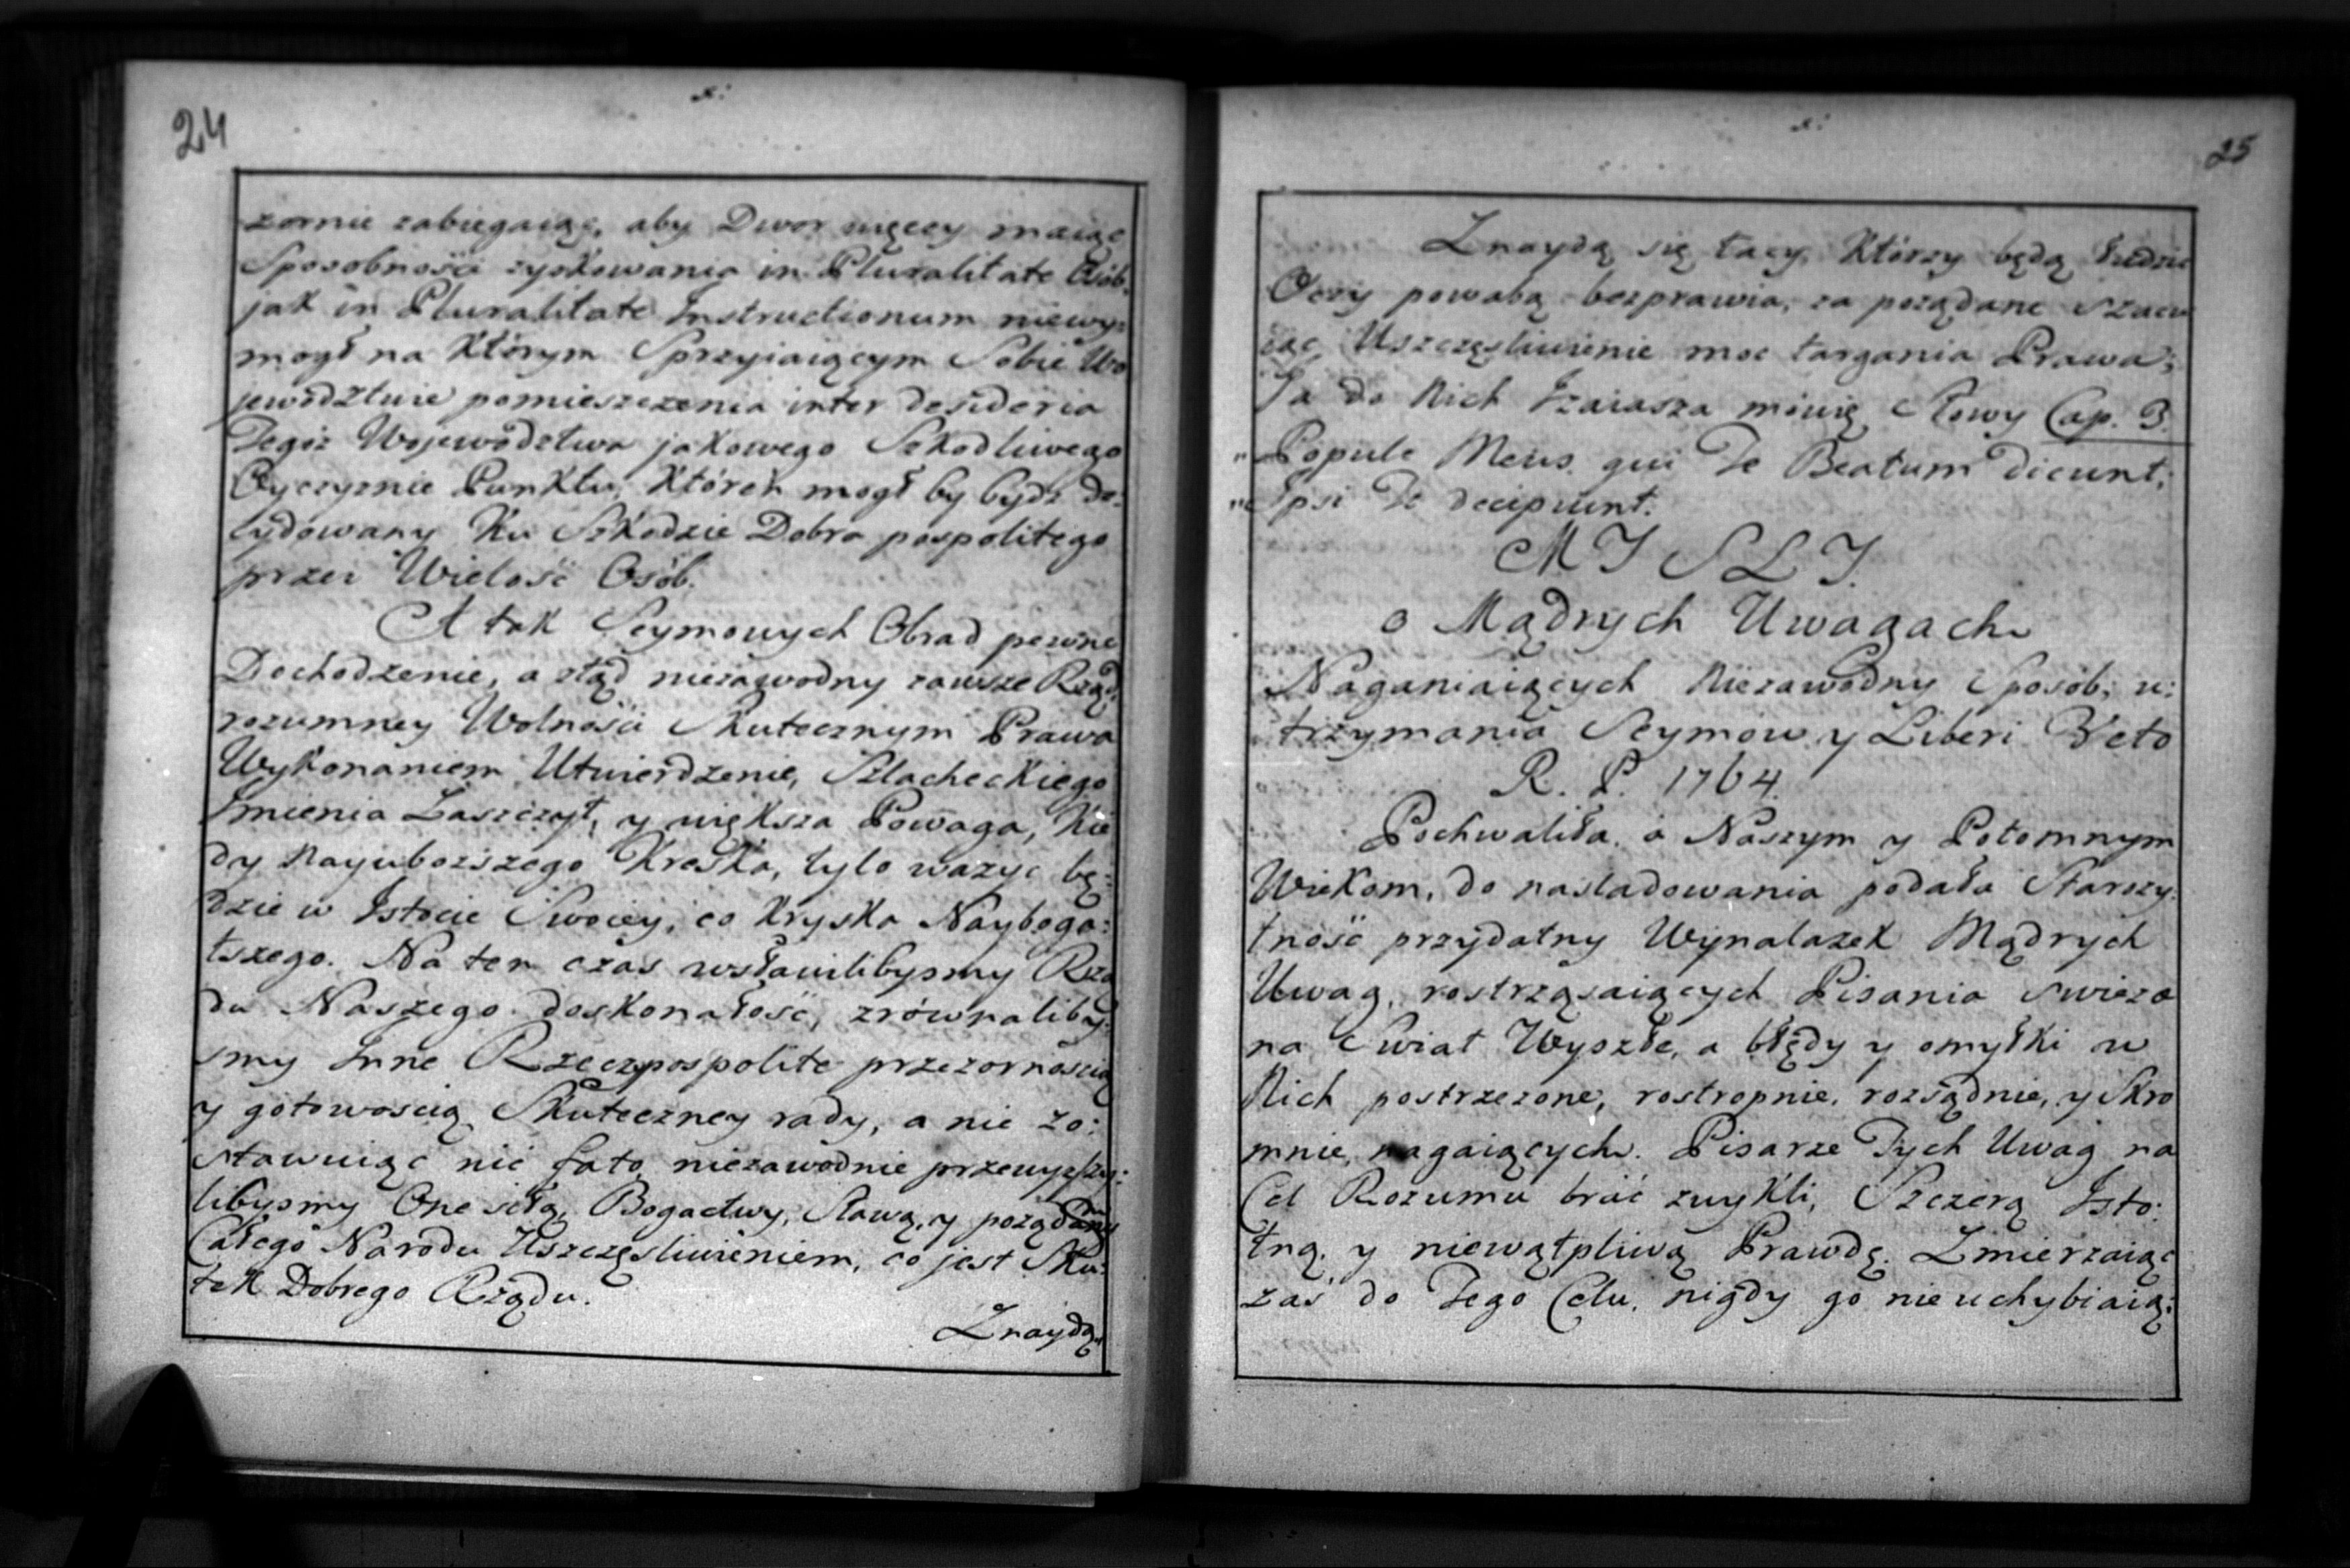 24
zornie zabiegaiąc, aby Dwor więcey maiąc
Sposobności zyskowania in Pluralitate Osób,
jak in Pluralitate Instructionum niewy=
mogł na Którym Sprzyiaiącym Sobie Wo
jewodztwie pomieszczenia inter desideria
Tegoż Wojewodztwa jakowego Szkodliwego
Oyczyznie Punktu, Któren mogł by bydź de:
cydowany Ku Szkodzie Dobra pospolitego
przez Wielość Osób.
A tak Seymowych Obrad pewne
Dochodzenie, a ztąd niezawodny zawsze Rząd,
rozumney Wolności Skutecznym Prawa
Wykonaniem Utwierdzenie, Szlacheckiego
Imienia Zaszczyt, y większa Powaga, Kie
dy Nayuboższego Kreska, tylo ważyc bę:
dzie w Istocie Swoiey, co Kryska Nayboga:
tszego. Na ten czas wsławilibysmy Rzą
du Naszego doskonałość, zrównaliby:
smy Inne Rzeczpospolite przezornością
y gotowością Skuteczney rady, a nie zo:
stawuiąc nić fato niezawodnie przewyższy:
libysmy One siłą, Bogactwy, Sławą, y pożądany
Całego Narodu Uszczęsliwieniem, co jest Sku:
tek Dobrego Rządu.
Znaydą
25
Znaydą się tacy, Którzy będą łudzić
Oczy powabą bezprawia, za pożądane Szacu
iąc Uszczęsliwienie moc targania Prawa;
Ja do Nich Izaiasza mówię Słowy Cap. 3.
"Popule Meus qui Te Beatum dicunt;
"Ipsi Te decipiunt.
MYSLY
o Mądrych Uwagach
Naganiaiących Niezawodny Sposób, u:
trzymania Seymow y Liberi Veto
R. P. 1764.
Pochwaliła, a Naszym y Potomnym
Wiekom, do nasladowania podała Starozy:
tność przydatny Wynalazek Mądrych
Uwag, rostrząsaiących Pisania swiezo
na Swiat Wyszłe, a błędy y omyłki w
Nich postrzezone, rostropnie, rozsądnie, y Skro
mnie, nagaiących. Pisarze Tych Uwag na
Cel Rozumu brać zwykli, Szczerą Isto:
tną, y niewątpliwą Prawdę. Zmierzaiąc
zaś do Tego Celu, nigdy go nieuchybiaią: